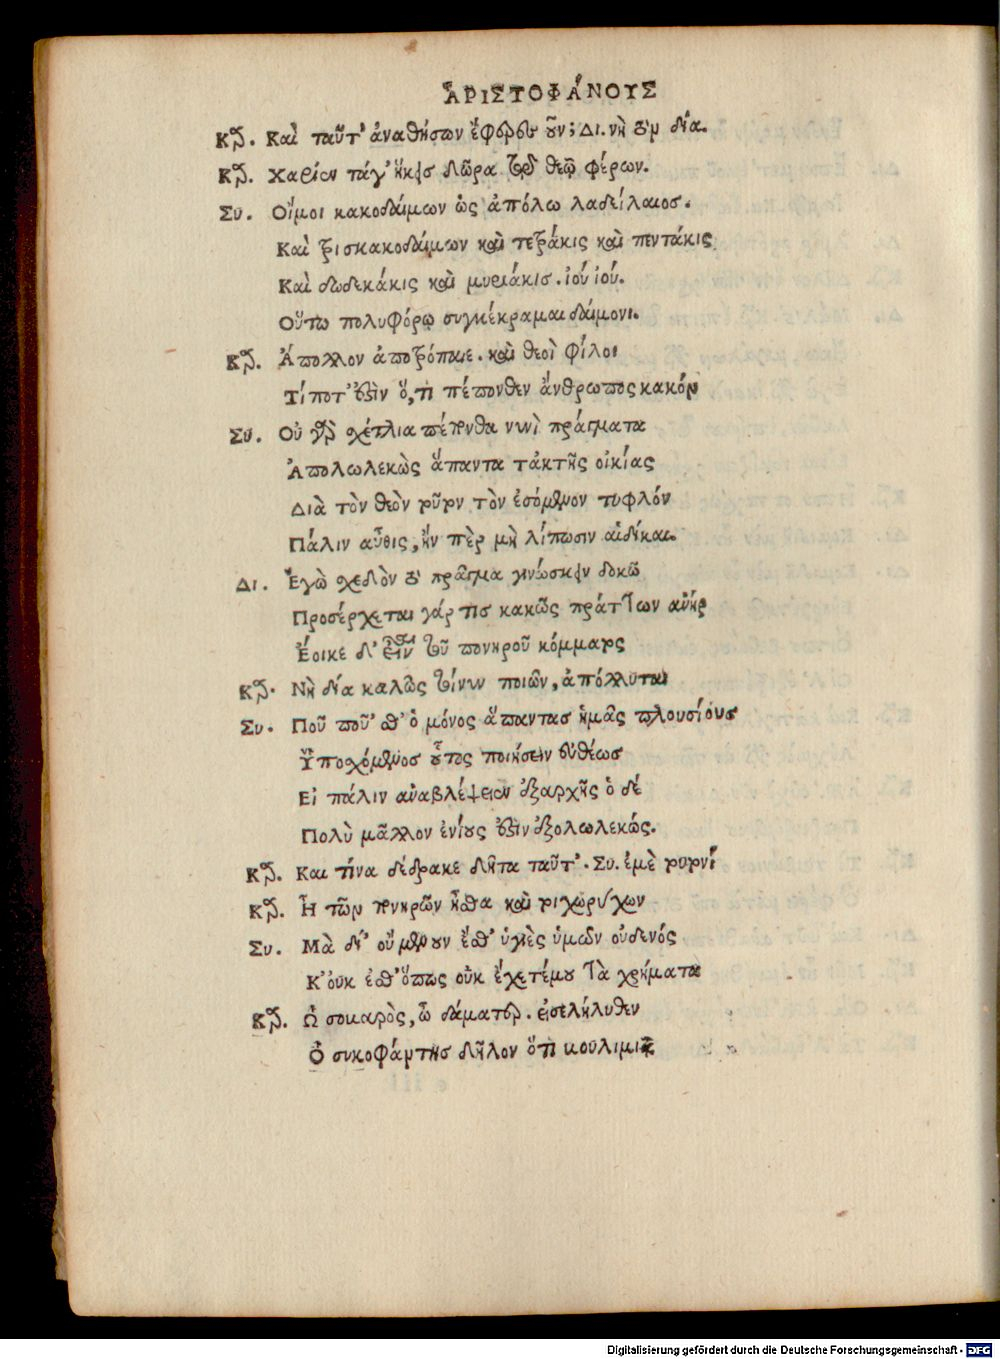 ἈΡΙΣΤΟΦΆΝΟΥΣ
Κρ. Καὶ ταῦτ' ἀναθήσων ἔφερες οὖν; Δι. νὴ τὸν δία.
Κρ. Χαρίεν τάγ' ἥκεις δῶρα τῷ θεῷ φέρων.
Συ. Οἴμοι κακοδαίμων ὡς ἀπόλωλα δείλαιος.
Καὶ τρισκακοδαίμων καὶ τετράκις καὶ πεντάκις
Καὶ δωδεκάκις καὶ μυριάκις. ἰοὺ ἰού.
Οὕτω πολυφόρῳ συγκέκραμαι δαίμονι.
Κρ. Ἄπολλον ἀποτρόπαιε. καὶ θεοὶ φίλοι
Τί ποτ' ἐστὶν ὅ, τι πέπονθεν ἄνθρωπος κακόν
Συ. Οὐ γὰρ σχέτλια πέπονθα νυνὶ πράγματα
Ἀπολωλεκὼς ἅπαντα τἀκ τῆς οἰκίας
Διὰ τὸν θεὸν τοῦτον τὸν ἐσόμενον τυφλόν
Πάλιν αὖθις, ἤν πὲρ μὴ λίπωσιν αἱ δίκαι.
Δι. Ἐγὼ σχεδὸν τὸ πρᾶγμα γινώσκειν δοκῶ
Προσέρχεται γάρ τις κακῶς πράττων ἀνήρ
Ἔοικε δ' εἶναι τοῦ πονηροῦ κόμματος
Κρ. Νὴ δία καλῶς τοίνυν ποιῶν, ἀπόλλυται
Συ. Ποῦ ποῦ 'σθ' ὁ μόνος ἅπαντας ἡμᾶς πλουσίους
Ὑποσχόμενος οὗτος ποιήσειν εὐθέως
Εἰ πάλιν ἀναβλέψειεν ἐξαρχῆς ὁ δέ
Πολὺ μᾶλλον ἐνίους ἐστὶν ἐξολωλεκώς.
Κρ. Και τίνα δέδρακε δῆτα ταῦτ'. Συ. ἐμὲ τουτνί
Κρ. Ἦ τῶν πονηρῶν ἦσθα καὶ τοιχωρύχων
Συ. Μὰ δί' οὐ μὲν οὖν ἔσθ' ὑγιὲς ὑμῶν οὐδενός
Κ'οὐκ ἐσθ' ὅπως οὐκ ἔχετέ μου τὰ χρήματα
Κρ. Ὡ σοικαρὸς, ὦ δάματερ. εἰσελήλυθεν
Ὁ συκοφάντης δῆλον ὅτι κουλιμιᾷ
Digitalisierung gefördert durch die Deutsche Forschungsgemeinschaft - DFG